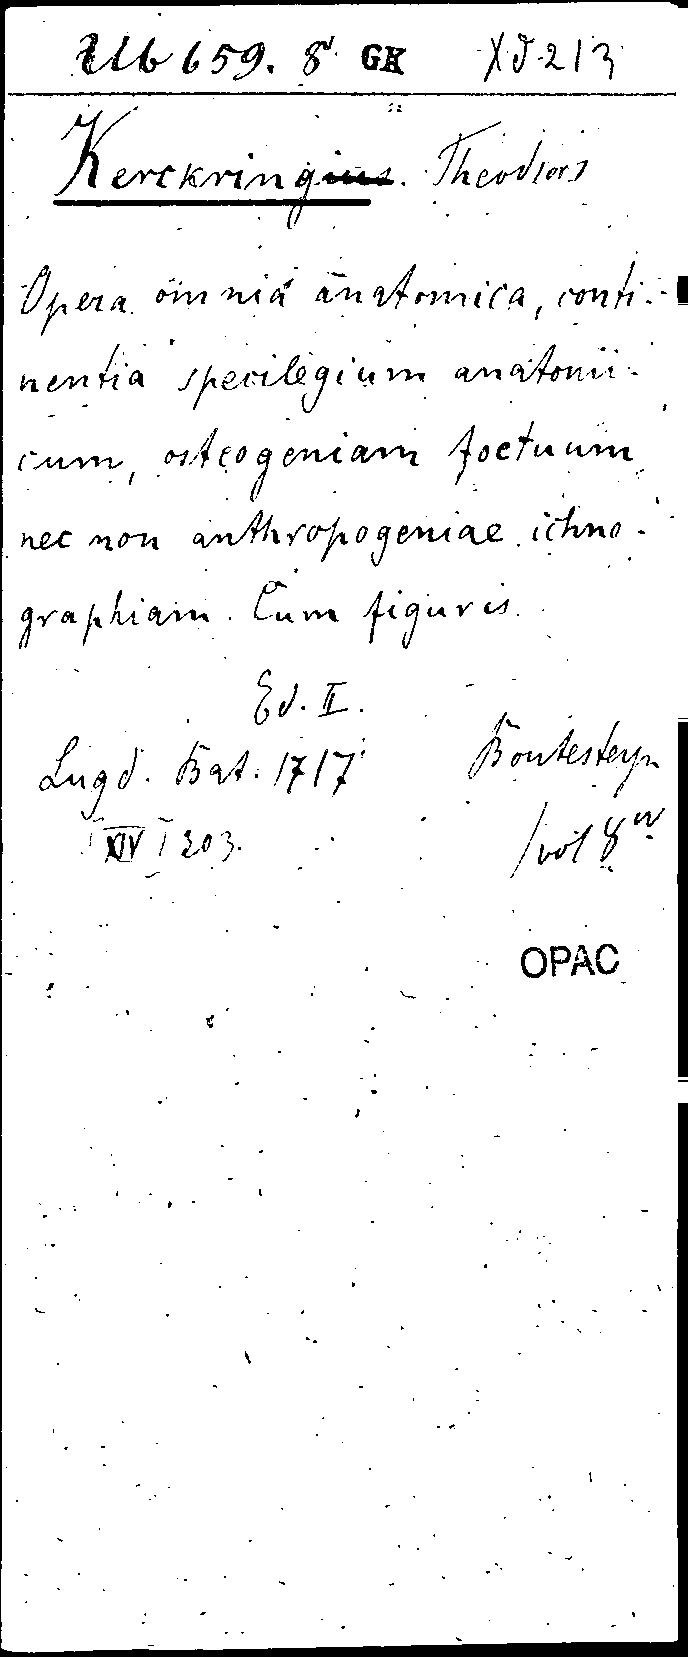 Ub 659. 8° GK Xd 213
Kerckringius. Theodors
Opera omnia anatomica, conti-
nentia specilegium anatomi-
cum, osteogeniam foetuum
nec non anthropogeniae ichno-
graphiam. Cum figuris.
Ed. II.
Lugd. Bat. 1717 Boutesteyn
XIV 203. 1 vol 8vo
OPAC